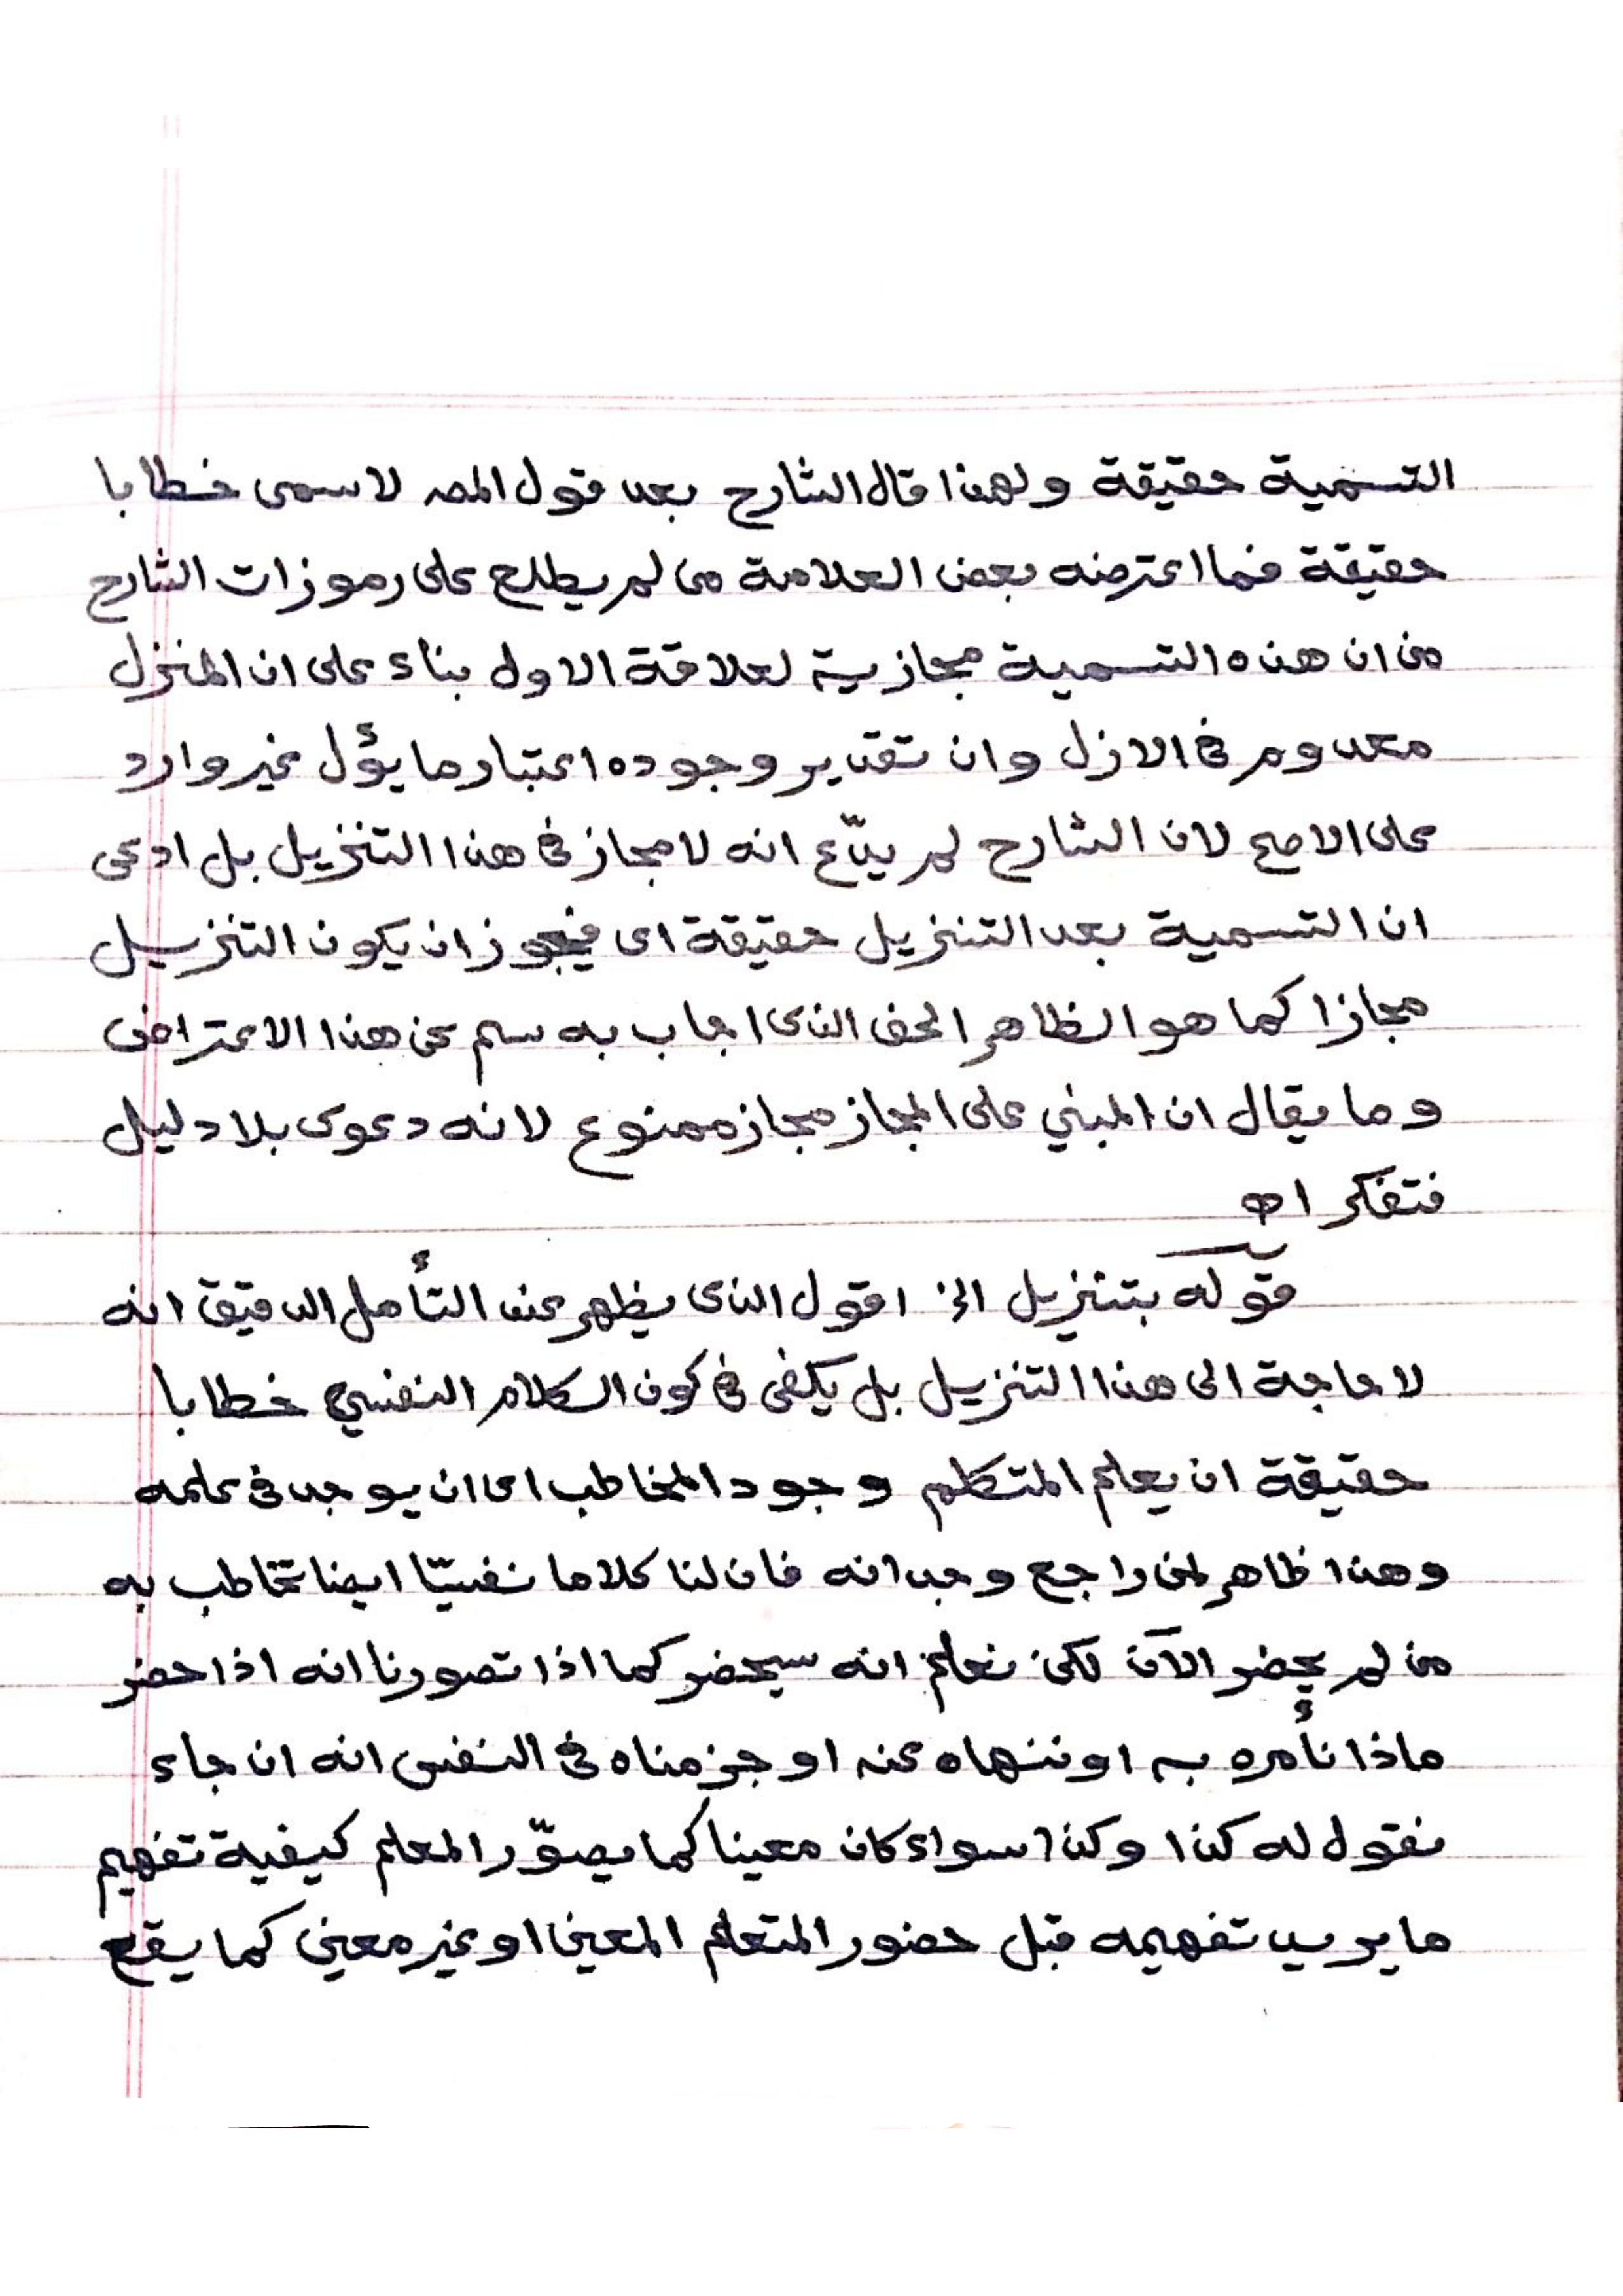 التسمية حقيقة ولهذا قال الشارح بعد قول المصـ لاسمى خطابا
حقيقة فما اعترضه بعض العلامة من لم يطلع على رموزات الشارح
من ان هذه التسمية مجازية لعلاقة الاول بناء على ان المنزل
معدوم فى الازل وان تقدير وجوده اعتبار ما يؤل غير وارد
على الاصح لان الشارح لم يدّع انه لا مجاز فى هذا التنزيل بل ادعى
ان التسمية بعد التنزيل حقيقة اى فيجوز ان يكون التنزيل
مجازا كما هو الظاهر الحق الذى اجاب به سم عن هذا الاعتراض
وما يقال ان المبني على المجاز مجاز ممنوع لانه دعوى بلا دليل
فتفكر اه
قوله بتنزيل الخ اقول الذى يظهر عند التأمل الدقيق انه
لا حاجة الى هذا التنزيل بل يكفى فى كون الكلام النفسي خطابا
حقيقة ان يعلم المتكلم وجود المخاطب اى ان يوجد فى علمه
وهذا ظاهر لمن راجع وجدانه فان لنا كلاما نفسيّا ايضا نخاطب به
من لم يحضر الآن لكن نعلم انه سيحضر كما اذا تصورنا انه اذا حضر
ماذا نأمره به او ننهاه عنه او جزمناه فى النفس انه ان جاء
نقول له كذا وكذا سواء كان معينا كما يصوّر المعلم كيفية تفهيم
ما يريد تفهيمه قبل حضور المتعلم المعين او غير معين كما يقع